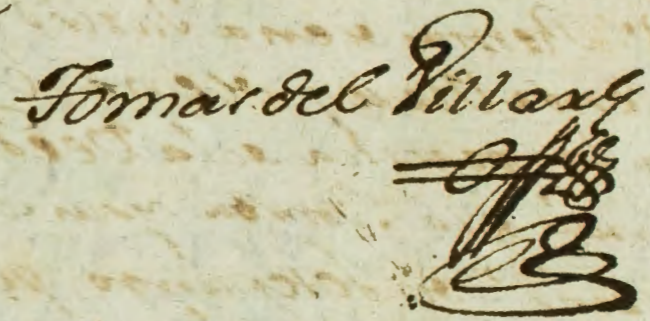 Tomas del Villar